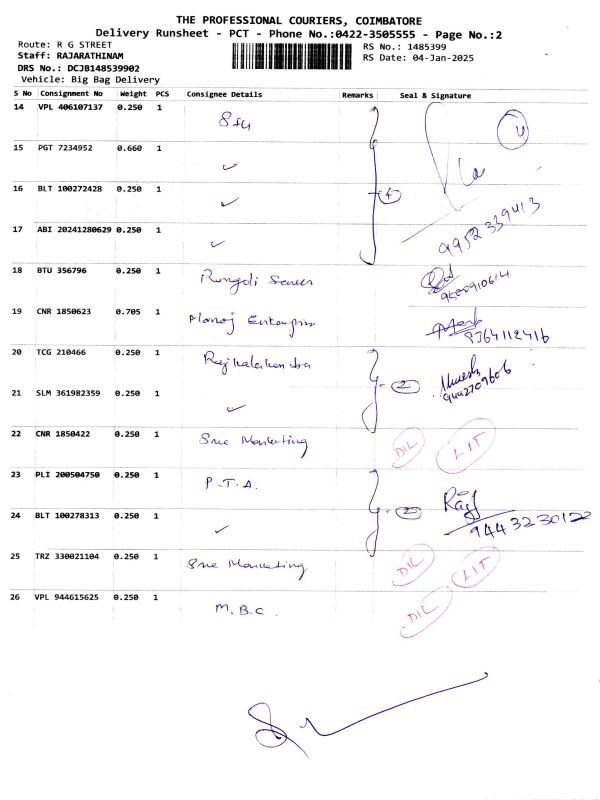 THE PROFESSIONAL COURIERS, COIMBATORE
Delivery Runsheet - PCT - Phone No.:0422-3505555 - Page No.:2
Route: R G STREET
RS No.: 1485399
Staff: RAJARATHINAM
RS Date: 04-Jan-2025
DRS No.: DCJB148539902
Vehicle: Big Bag Delivery
S No Consignment No Weight PCS Consignee Details Remarks Seal & Signature
14 VPL 406107137 0.250 1
15 PGT 7234952 0.660 1 ✓
16 BLT 100272428 0.250 1 ✓ 4
17 ABI 20241280629 0.250 1 ✓ 9952339413
18 BTU 356796 0.250 1
19 CNR 1850623 0.705 1 Manoj Enterprises 9364112416
20 TCG 210466 0.250 1
2 9442709606
21 SLM 361982359 0.250 1 ✓
22 CNR 1850422 0.250 1 Sree Marketing D/L LIT
23 PLI 200504750 0.250 1 P.T.A.
2 Raj
24 BLT 100278313 0.250 1 ✓ 9443230122
25 TRZ 330021104 0.250 1 Sree Marketing D/L LIT
26 VPL 944615625 0.250 1 M.B.C. D/L